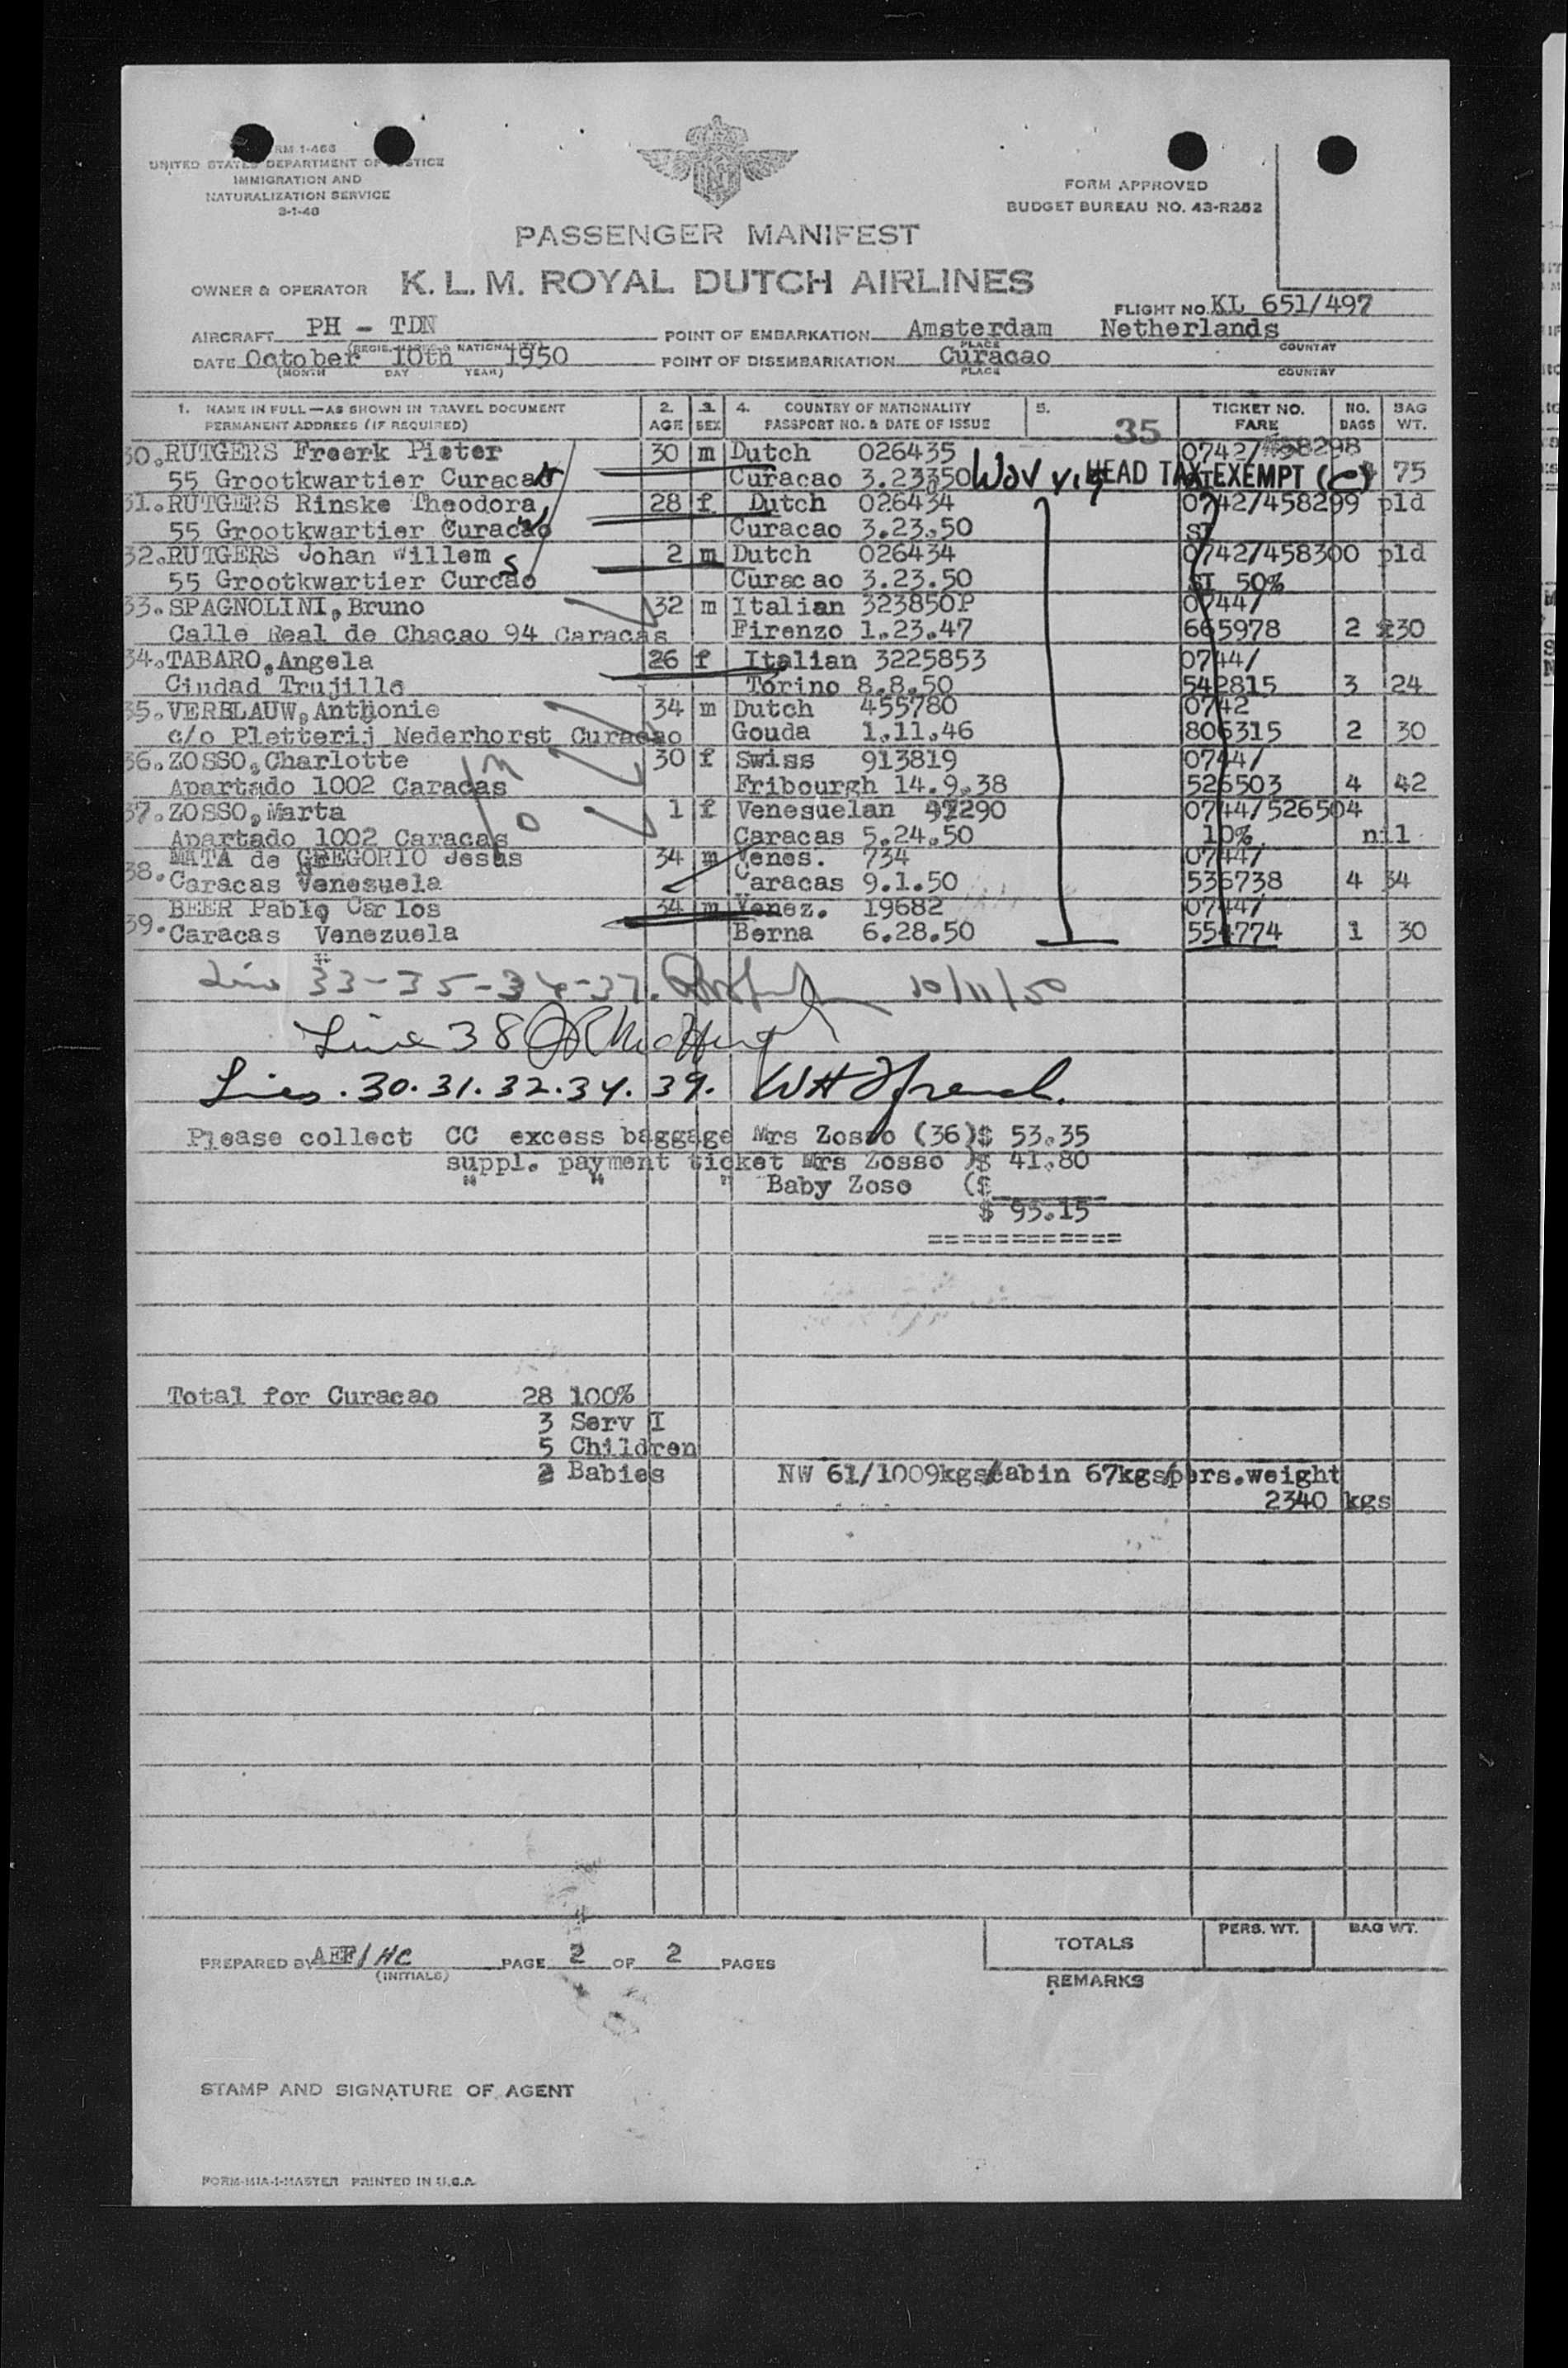 FORM 1-466
UNITED STATES DEPARTMENT OF JUSTICE
IMMIGRATION AND
NATURALIZATION SERVICE
3-1-48
FORM APPROVED
BUDGET BUREAU NO. 43-R252
PASSENGER MANIFEST
OWNER & OPERATOR K. L. M. ROYAL DUTCH AIRLINES
FLIGHT NO. KL 651/497
AIRCRAFT PH - TDN POINT OF EMBARKATION Amsterdam Netherlands
(REGIS. MARKS & NATIONALITY) PLACE COUNTRY
DATE October 10th 1950 POINT OF DISEMBARKATION Curacao
(MONTH DAY YEAR) PLACE COUNTRY
1. NAME IN FULL—AS SHOWN IN TRAVEL DOCUMENT 2. 3. 4. COUNTRY OF NATIONALITY 5. TICKET NO. NO. BAG
PERMANENT ADDRESS (IF REQUIRED) AGE SEX PASSPORT NO. & DATE OF ISSUE 35 FARE BAGS WT.
30. RUTGERS Freerk Pieter 30 m Dutch 026435 0742/458298
55 Grootkwartier Curacao Curacao 3.23.50 HEAD TAX EXEMPT (e) 75
31. RUTGERS Rinske Theodora 28 f Dutch 026434 0742/458299 pld
55 Grootkwartier Curacao Curacao 3.23.50 SI
32. RUTGERS Johan Willem 2 m Dutch 026434 0742/458300 pld
55 Grootkwartier Curcao Curacao 3.23.50 SI 50%
33. SPAGNOLINI, Bruno 32 m Italian 323850P 0744/
Calle Real de Chacao 94 Caracas Firenzo 1.23.47 665978 2 30
34. TABARO, Angela 26 f Italian 3225853 0744/
Ciudad Trujillo Torino 8.8.50 542815 3 24
35. VERBLAUW, Anthonie 34 m Dutch 455780 0742
c/o Pletterij Nederhorst Curacao Gouda 1.11.46 806315 2 30
36. ZOSSO, Charlotte 30 f Swiss 913819 0744/
Apartado 1002 Caracas Fribourgh 14.9.38 526503 4 42
37. ZOSSO, Marta 1 f Venesuelan 97290 0744/526504
Apartado 1002 Caracas Caracas 5.24.50 10% nil
38. MATA de GREGORIO Jesus 34 m Venes. 734 0744/
Caracas Venesuela Caracas 9.1.50 536738 4 34
39. BEER Pablo Carlos 34 m Venez. 19682 0744/
Caracas Venezuela Berna 6.28.50 554774 1 30
10/11/50
Line 38
Lines. 30. 31. 32. 34. 39. WH French.
Please collect CC excess baggage Mrs Zosso (36)$ 53.35
suppl. payment ticket Mrs Zosso )$ 41.80
" " " Baby Zoso ($
$ 95.15
============
Total for Curacao 28 100%
3 Serv I
5 Children
2 Babies NW 61/1009kgs/cabin 67kgs/pers.weight
2340 kgs
PERS. WT. BAG WT.
TOTALS
PREPARED BY AEF/HC PAGE 2 OF 2 PAGES
(INITIALS)
REMARKS
STAMP AND SIGNATURE OF AGENT
FORM-MIA-1-MASTER PRINTED IN U.S.A.